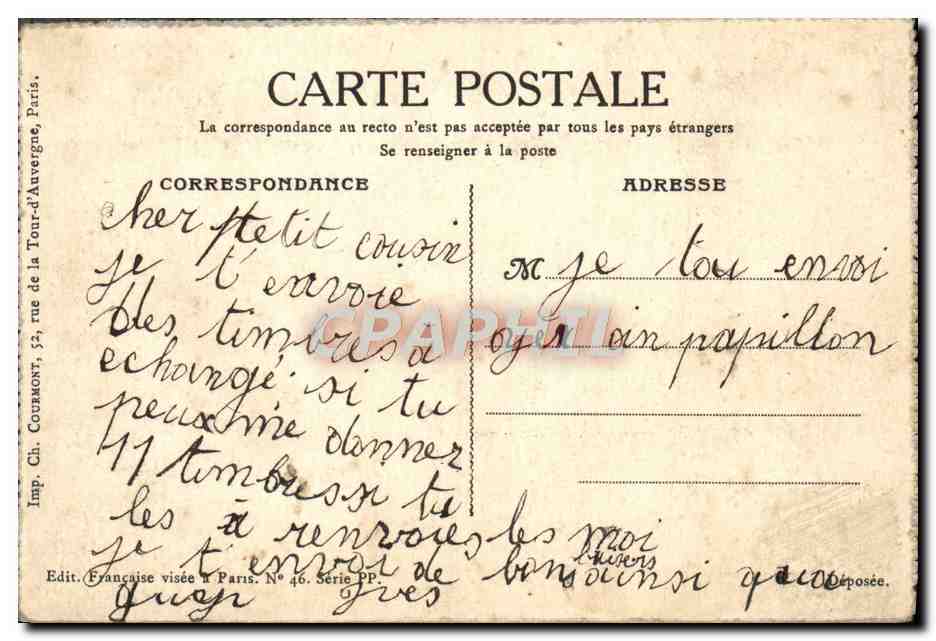 CARTE POSTALE
La correspondance au recto n'est pas acceptée par tous les pays étrangers
Se renseigner à la poste
CORRESPONDANCE
cher Petit cousin
je t'envoie
des timbres à
echangé. si tu
peux me donner
11 timbres si tu
les a renvoies les moi
je t'envoi de bons baisers ainsi qu
Yves
ADRESSE
M je tou envoi
oyer un papillon
Imp. Ch. COURMONT, 52, rue de la Tour-d'Auvergne, Paris.
Edit. Française visée à Paris. N° 46. Série PP.
Déposée.
CPAPHIL